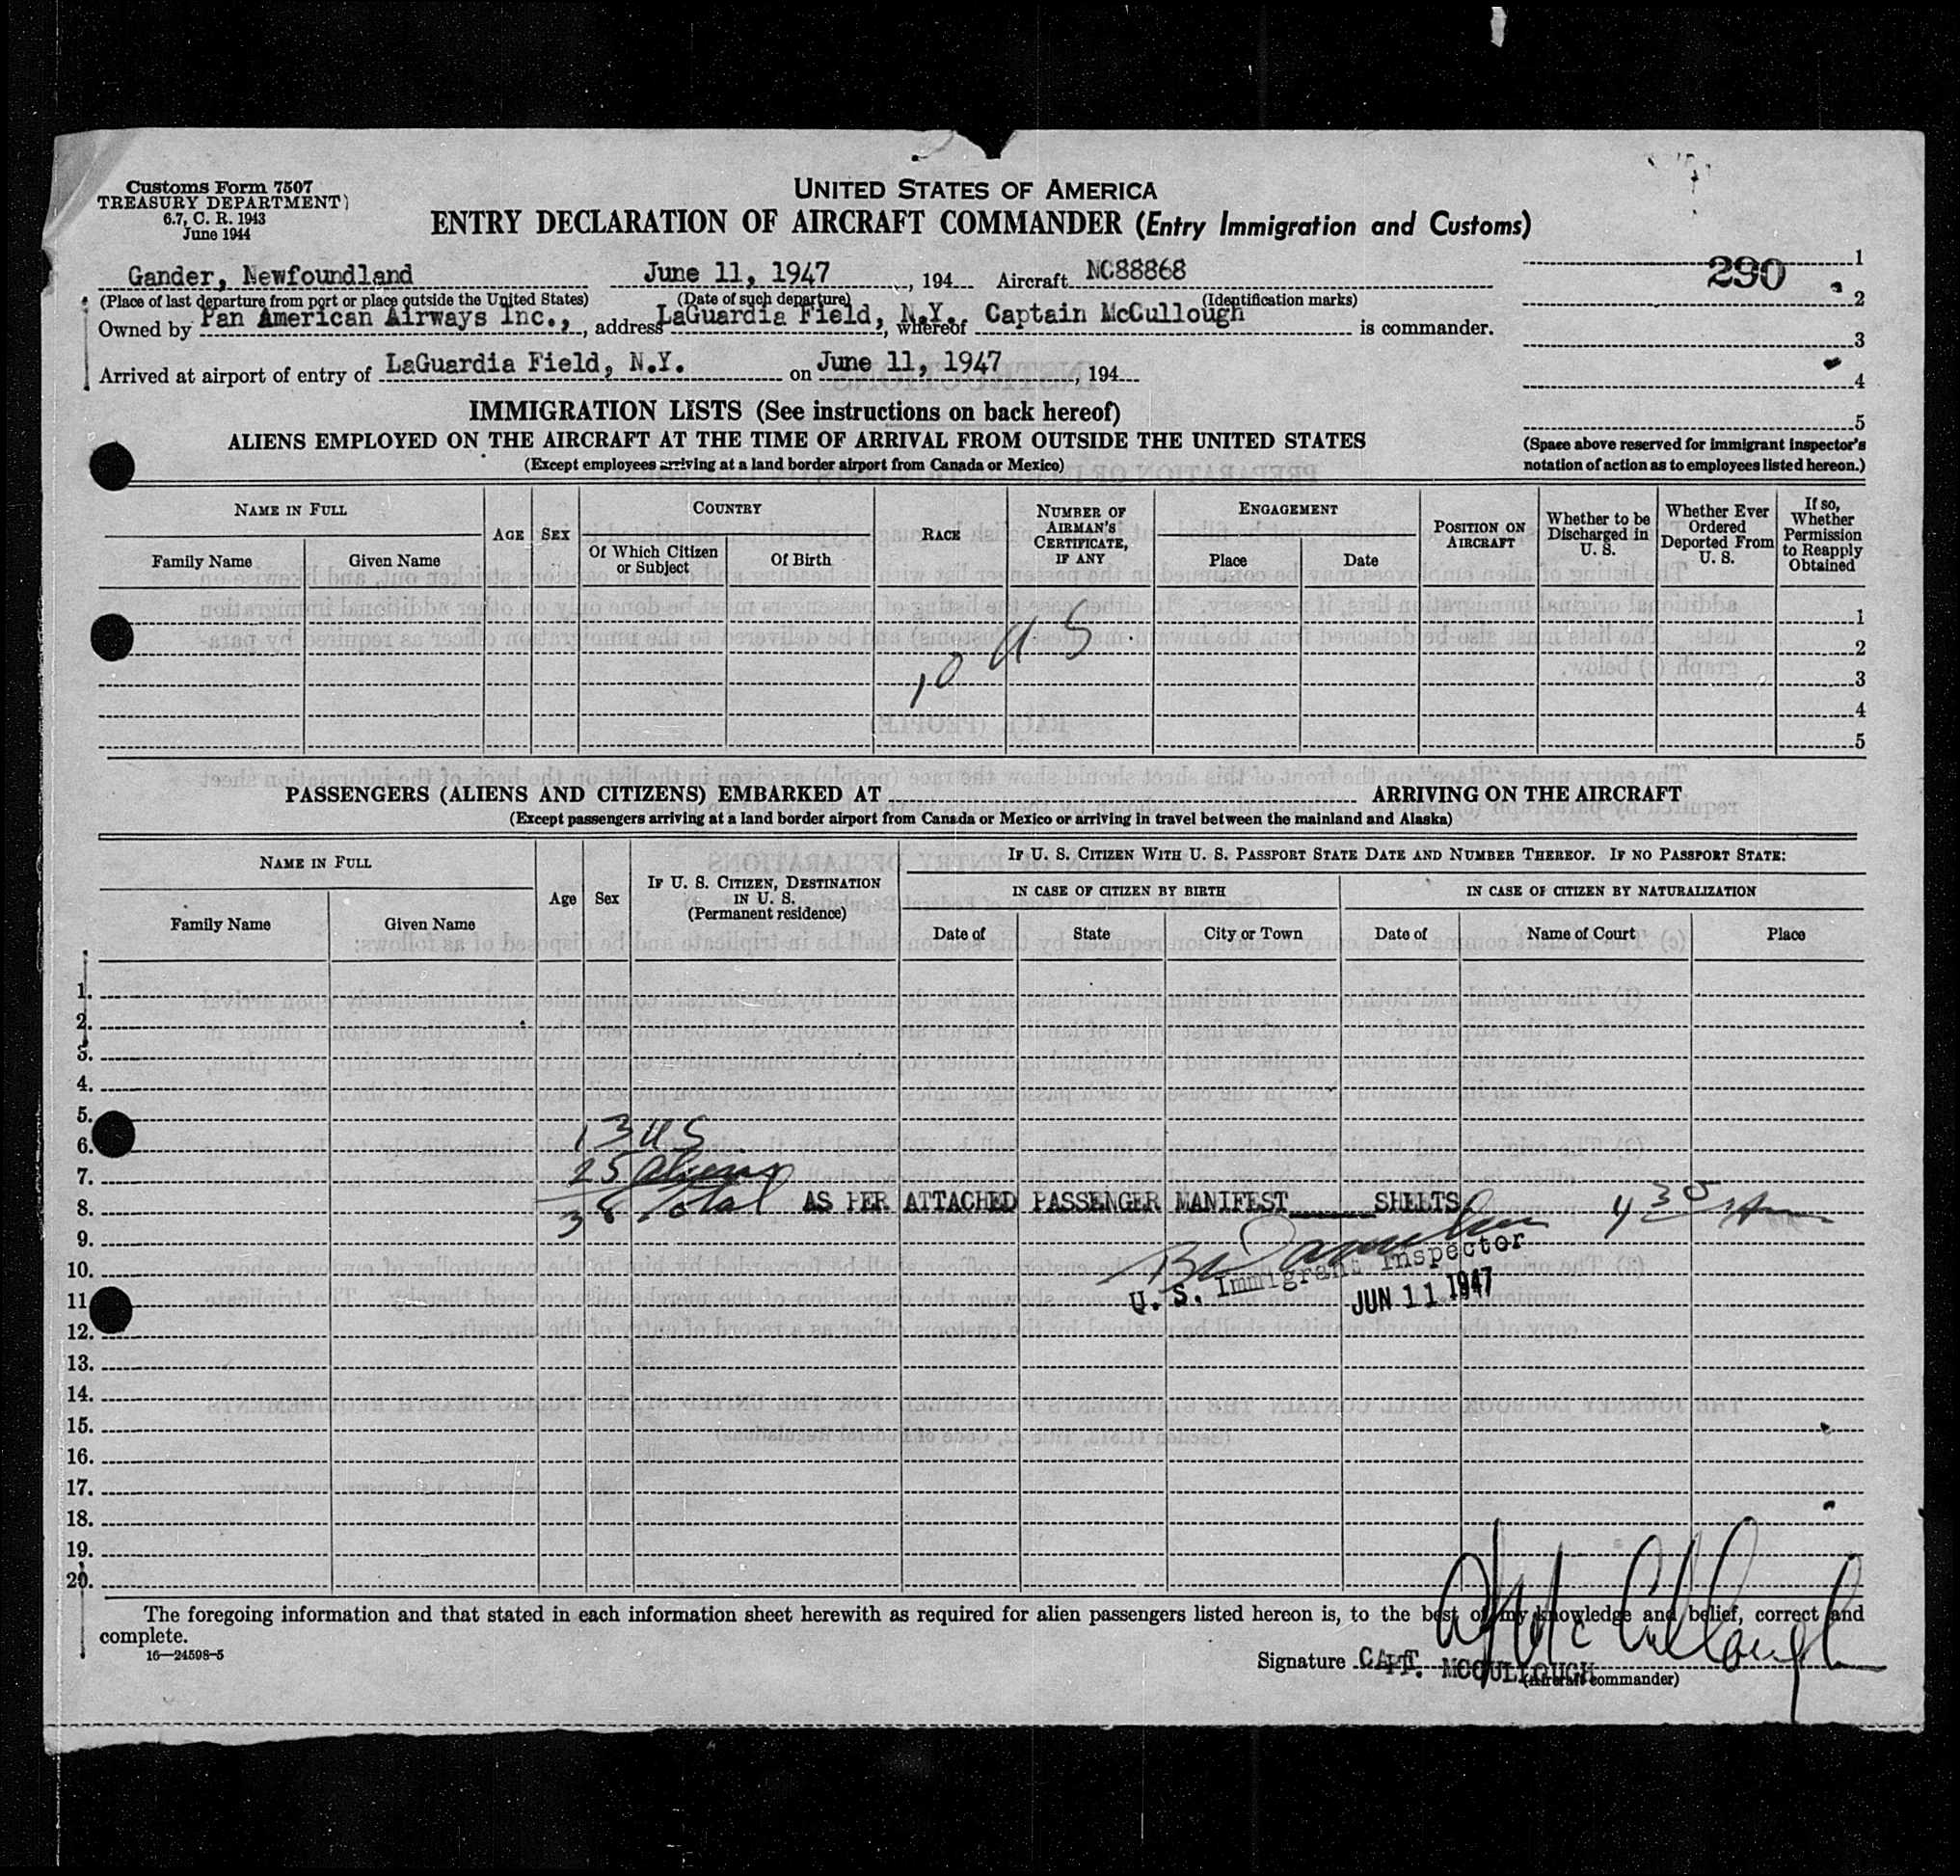 Customs Form 7507
TREASURY DEPARTMENT)
6.7, C. R. 1943
June 1944
UNITED STATES OF AMERICA
ENTRY DECLARATION OF AIRCRAFT COMMANDER (Entry Immigration and Customs)
290
1
2
3
4
5
Gander, Newfoundland June 11, 1947, 194 Aircraft NC88868
(Place of last departure from port or place outside the United States) (Date of such departure) (Identification marks)
Owned by Pan American Airways Inc., address LaGuardia Field, N.Y. whereof Captain McCullough is commander.
Arrived at airport of entry of LaGuardia Field, N.Y. on June 11, 1947, 194
IMMIGRATION LISTS (See instructions on back hereof)
ALIENS EMPLOYED ON THE AIRCRAFT AT THE TIME OF ARRIVAL FROM OUTSIDE THE UNITED STATES
(Except employees arriving at a land border airport from Canada or Mexico)
(Space above reserved for immigrant inspector's
notation of action as to employees listed hereon.)
NAME IN FULL
Family Name
Given Name
AGE
SEX
COUNTRY
Of Which Citizen
or Subject
Of Birth
RACE
NUMBER OF
AIRMAN'S
CERTIFICATE,
IF ANY
ENGAGEMENT
Place
Date
POSITION ON
AIRCRAFT
Whether to be
Discharged in
U. S.
Whether Ever
Ordered
Deported From
U. S.
If so,
Whether
Permission
to Reapply
Obtained
10 US
1
2
3
4
5
PASSENGERS (ALIENS AND CITIZENS) EMBARKED AT ARRIVING ON THE AIRCRAFT
(Except passengers arriving at a land border airport from Canada or Mexico or arriving in travel between the mainland and Alaska)
NAME IN FULL
Family Name
Given Name
Age
Sex
IF U. S. CITIZEN, DESTINATION
IN U. S.
(Permanent residence)
IF U. S. CITIZEN WITH U. S. PASSPORT STATE DATE AND NUMBER THEREOF. IF NO PASSPORT STATE:
IN CASE OF CITIZEN BY BIRTH
IN CASE OF CITIZEN BY NATURALIZATION
Date of
State
City or Town
Date of
Name of Court
Place
1.
2.
3.
4.
5.
6. 13 US
7. 25 aliens
8. 38 Total AS PER ATTACHED PASSENGER MANIFEST SHEETS 4 35
9.
10. U. S. Immigrant Inspector
11 JUN 11 1947
12.
13.
14.
15.
16.
17.
18.
19.
20.
The foregoing information and that stated in each information sheet herewith as required for alien passengers listed hereon is, to the best of my knowledge and belief, correct and
complete.
16—24598-5
Signature CAPT. MCCULLOUGH
(Aircraft commander)